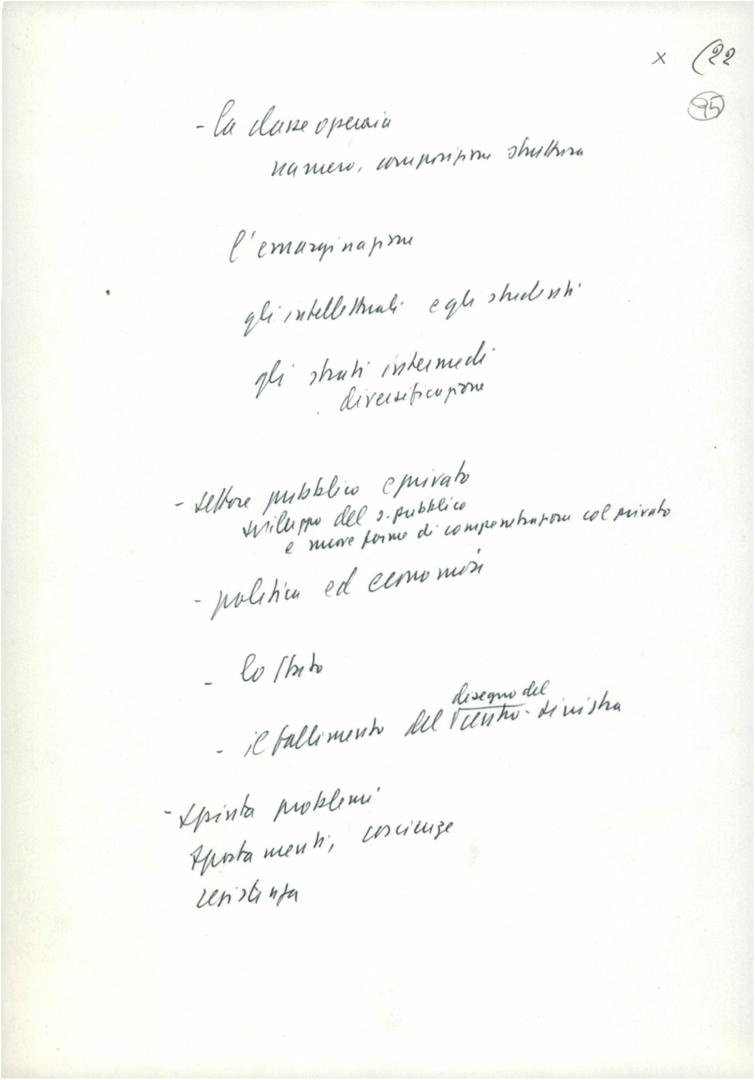 x (22
95
- la classe operaia
numero, composizione struttura
l'emarginazione
gli intellettuali e gli studenti
gli strati intermedi
diversificazione
- settore pubblico e privato
sviluppo del s. pubblico
e nuove forme di compenetrazione col privato
- politica ed economia
- lo Stato
disegno del
- il fallimento del centro-sinistra
- spinta problemi
spostamenti, coscienze
resistenza